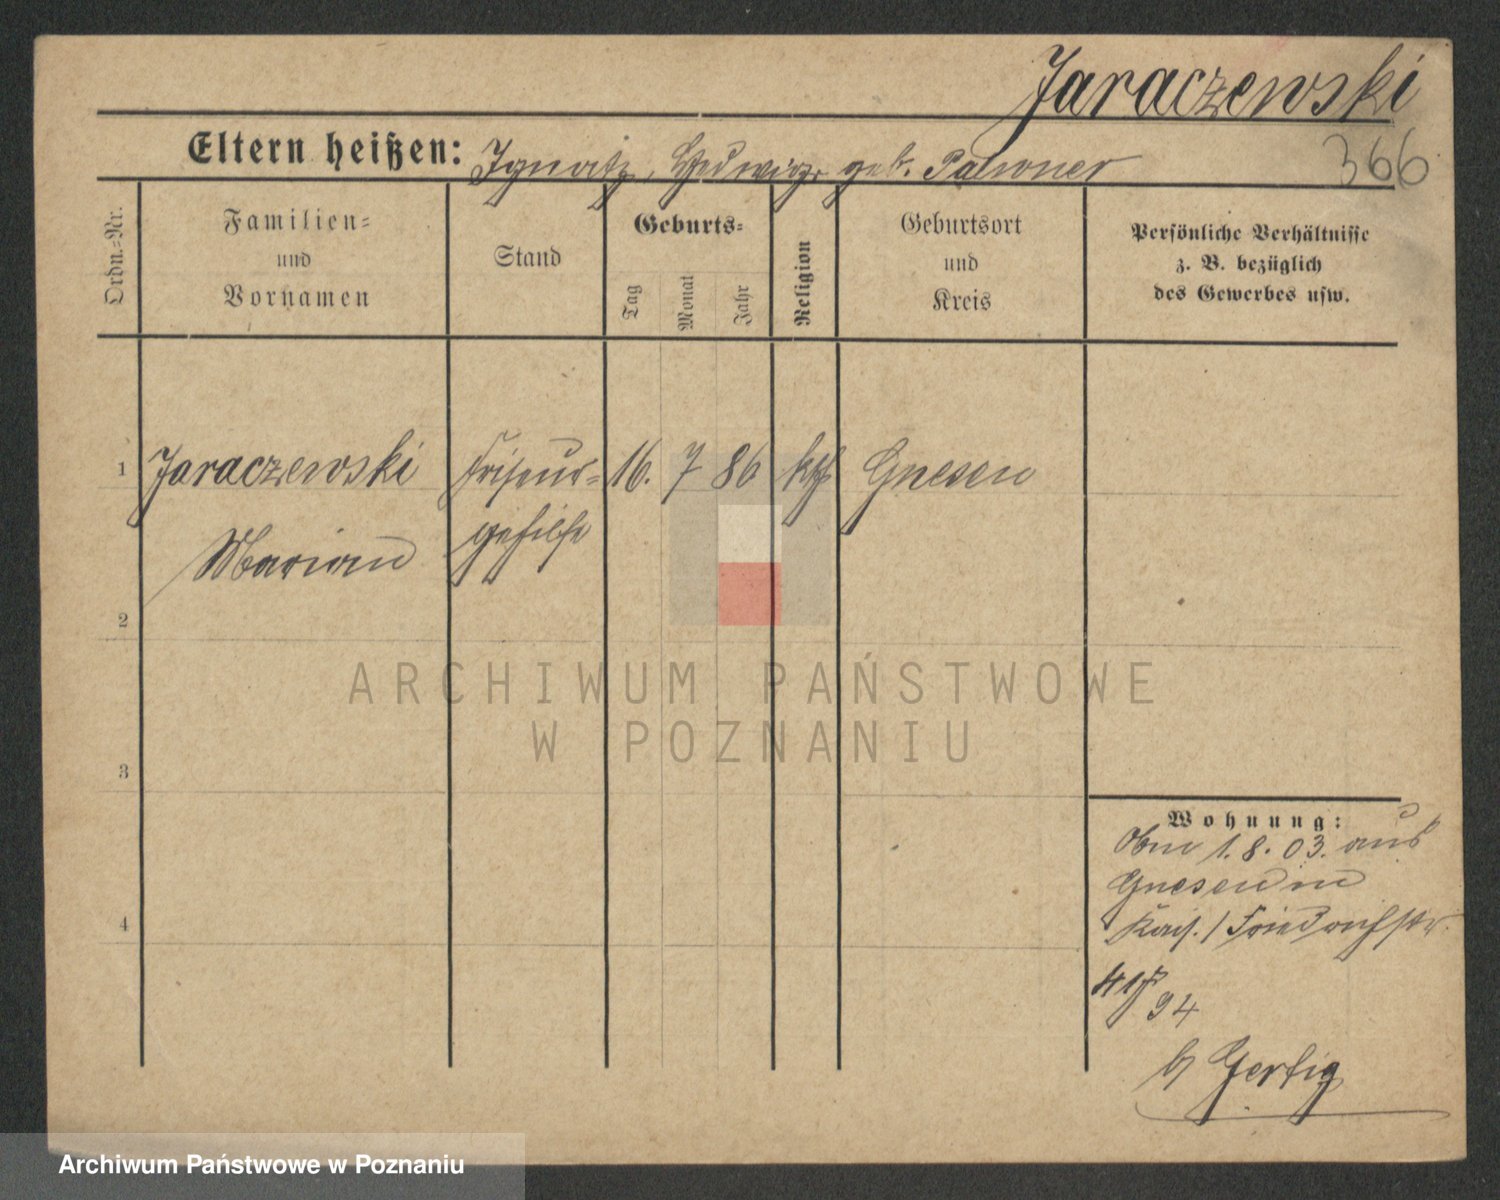 Jaraczewski
366
Eltern heißen: Ignatz, Hedwig geb.
Ordn.-Nr.
Familien-
und
Vornamen
Stand
Geburts-
Tag
Monat
Jahr
Religion
Geburtsort
und
Kreis
Persönliche Verhältnisse
z. B. bezüglich
des Gewerbes usw.
1 Jaraczewski Friseur- 16. 7 86 kth Gnesen
Marian gehilfe
2
3
4
Wohnung:
1. 8. 03. aus
Gnesen in
Kais. / Friedrichstr.
94
b/ Gertig
ARCHIWUM PAŃSTWOWE
W POZNANIU
Archiwum Państwowe w Poznaniu